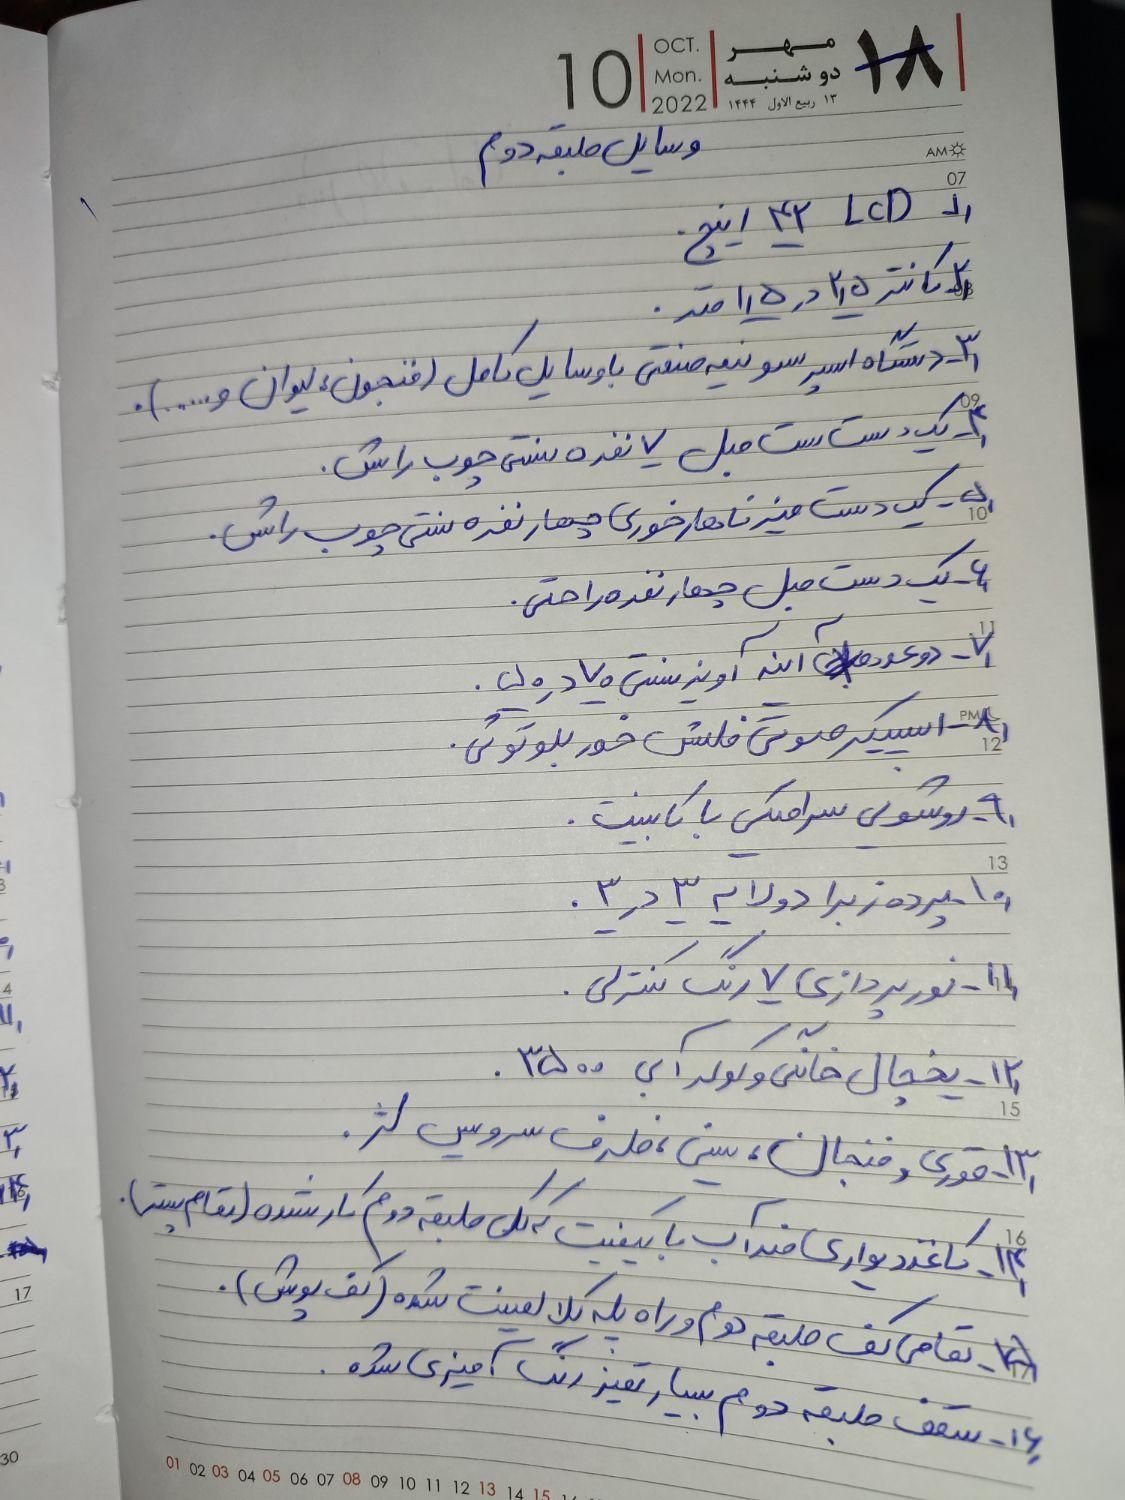 10 OCT. Mon. 2022 مهر دوشنبه ۱۳ ربیع الاول ۱۴۴۴ ۱۸
وسایل طبقه دوم
AM
07
۱- LCD ۴۲ اینچ.
۲- کانتر ۲،۵ در ۱،۵ متر.
08
۳- دستگاه اسپرسو نیمه صنعتی با وسایل کامل (فنجون، لیوان و.....).
09
۴- یک دست ست مبل ۷ نفره سنتی چوب راش.
۵- یک دست میز ناهارخوری چهار نفره سنتی چوب راش.
10
۶- یک دست مبل چهار نفره راحتی.
11
۷- دو عدد آینه آویز سنتی ۷۰ در ۵۰.
PM
۸- اسپیکر صوتی فلش خور بلوتوثی.
12
۹- روشویی سرامیکی با کابینت.
13
۱۰- پرده زبرا دولایه ۳ در ۳.
۱۱- نورپردازی ۷ رنگ کنترلی.
۱۲- یخچال خانگی و کولر آبی ۳۵۰۰.
15
۱۳- قوری و فنجان، سینی، ظرف سرویس لژ.
16
۱۴- کاغذ دیواری ضدآب با کیفیت که کل طبقه دوم کار شده (تمام پستر).
17
تمامی کف طبقه دوم و راه پله کلا لمینت شده (کف پوش).
۱۶- سقف طبقه دوم بسیار تمیز رنگ آمیزی شده.
01 02 03 04 05 06 07 08 09 10 11 12 13 14 15
17
30